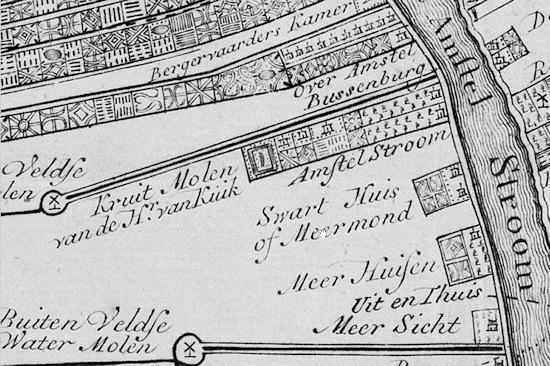 Bergervaarders Kamer
over Amstel
Bussenburg
Amstel Stroom
Veldse
len
Kruit Molen
van de Hr. van Kuik
Amstel Stroom
Swart Huis
of Meermond
Meer Huisen
Uit en Thuis
Meer Sicht
Buiten Veldse
Water Molen